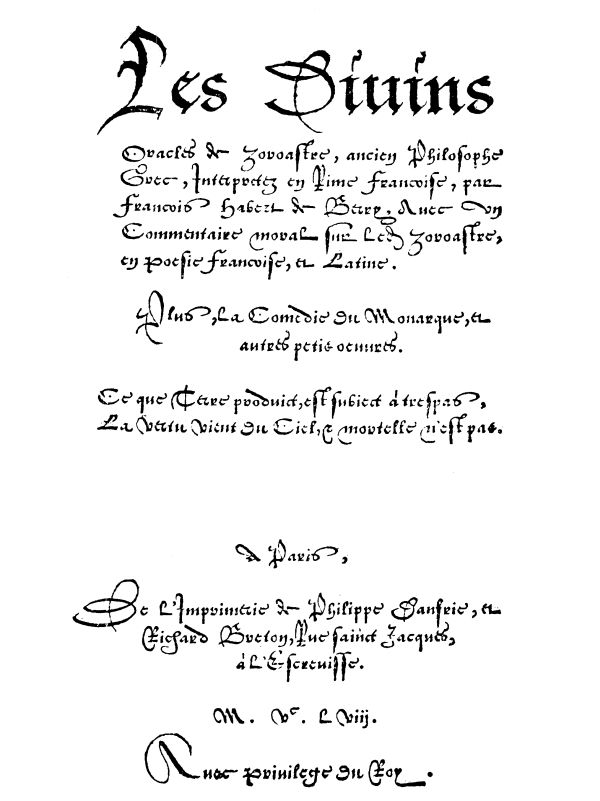 Les Diuins
Oracles de Zoroastre, ancien Philosophe
Grec, Interpretez en Rime Francoise, par
Francois Habert de Berry, Auec vn
Commentaire moral sur ledict Zoroastre,
en poesie Francoise, et Latine.
Plus, La Comedie du Monarque, et
autres petis oeuures.
Ce que Terre produict, est subiect à trespas,
La vertu vient du Ciel, & mortelle n'est pas.
A Paris,
De L'Imprimerie de Philippe Danfrie, et
Richard Breton, Rue sainct Jacques,
à L'Escreuisse.
M. vᶜ. L viij.
Auec priuilege du Roy.